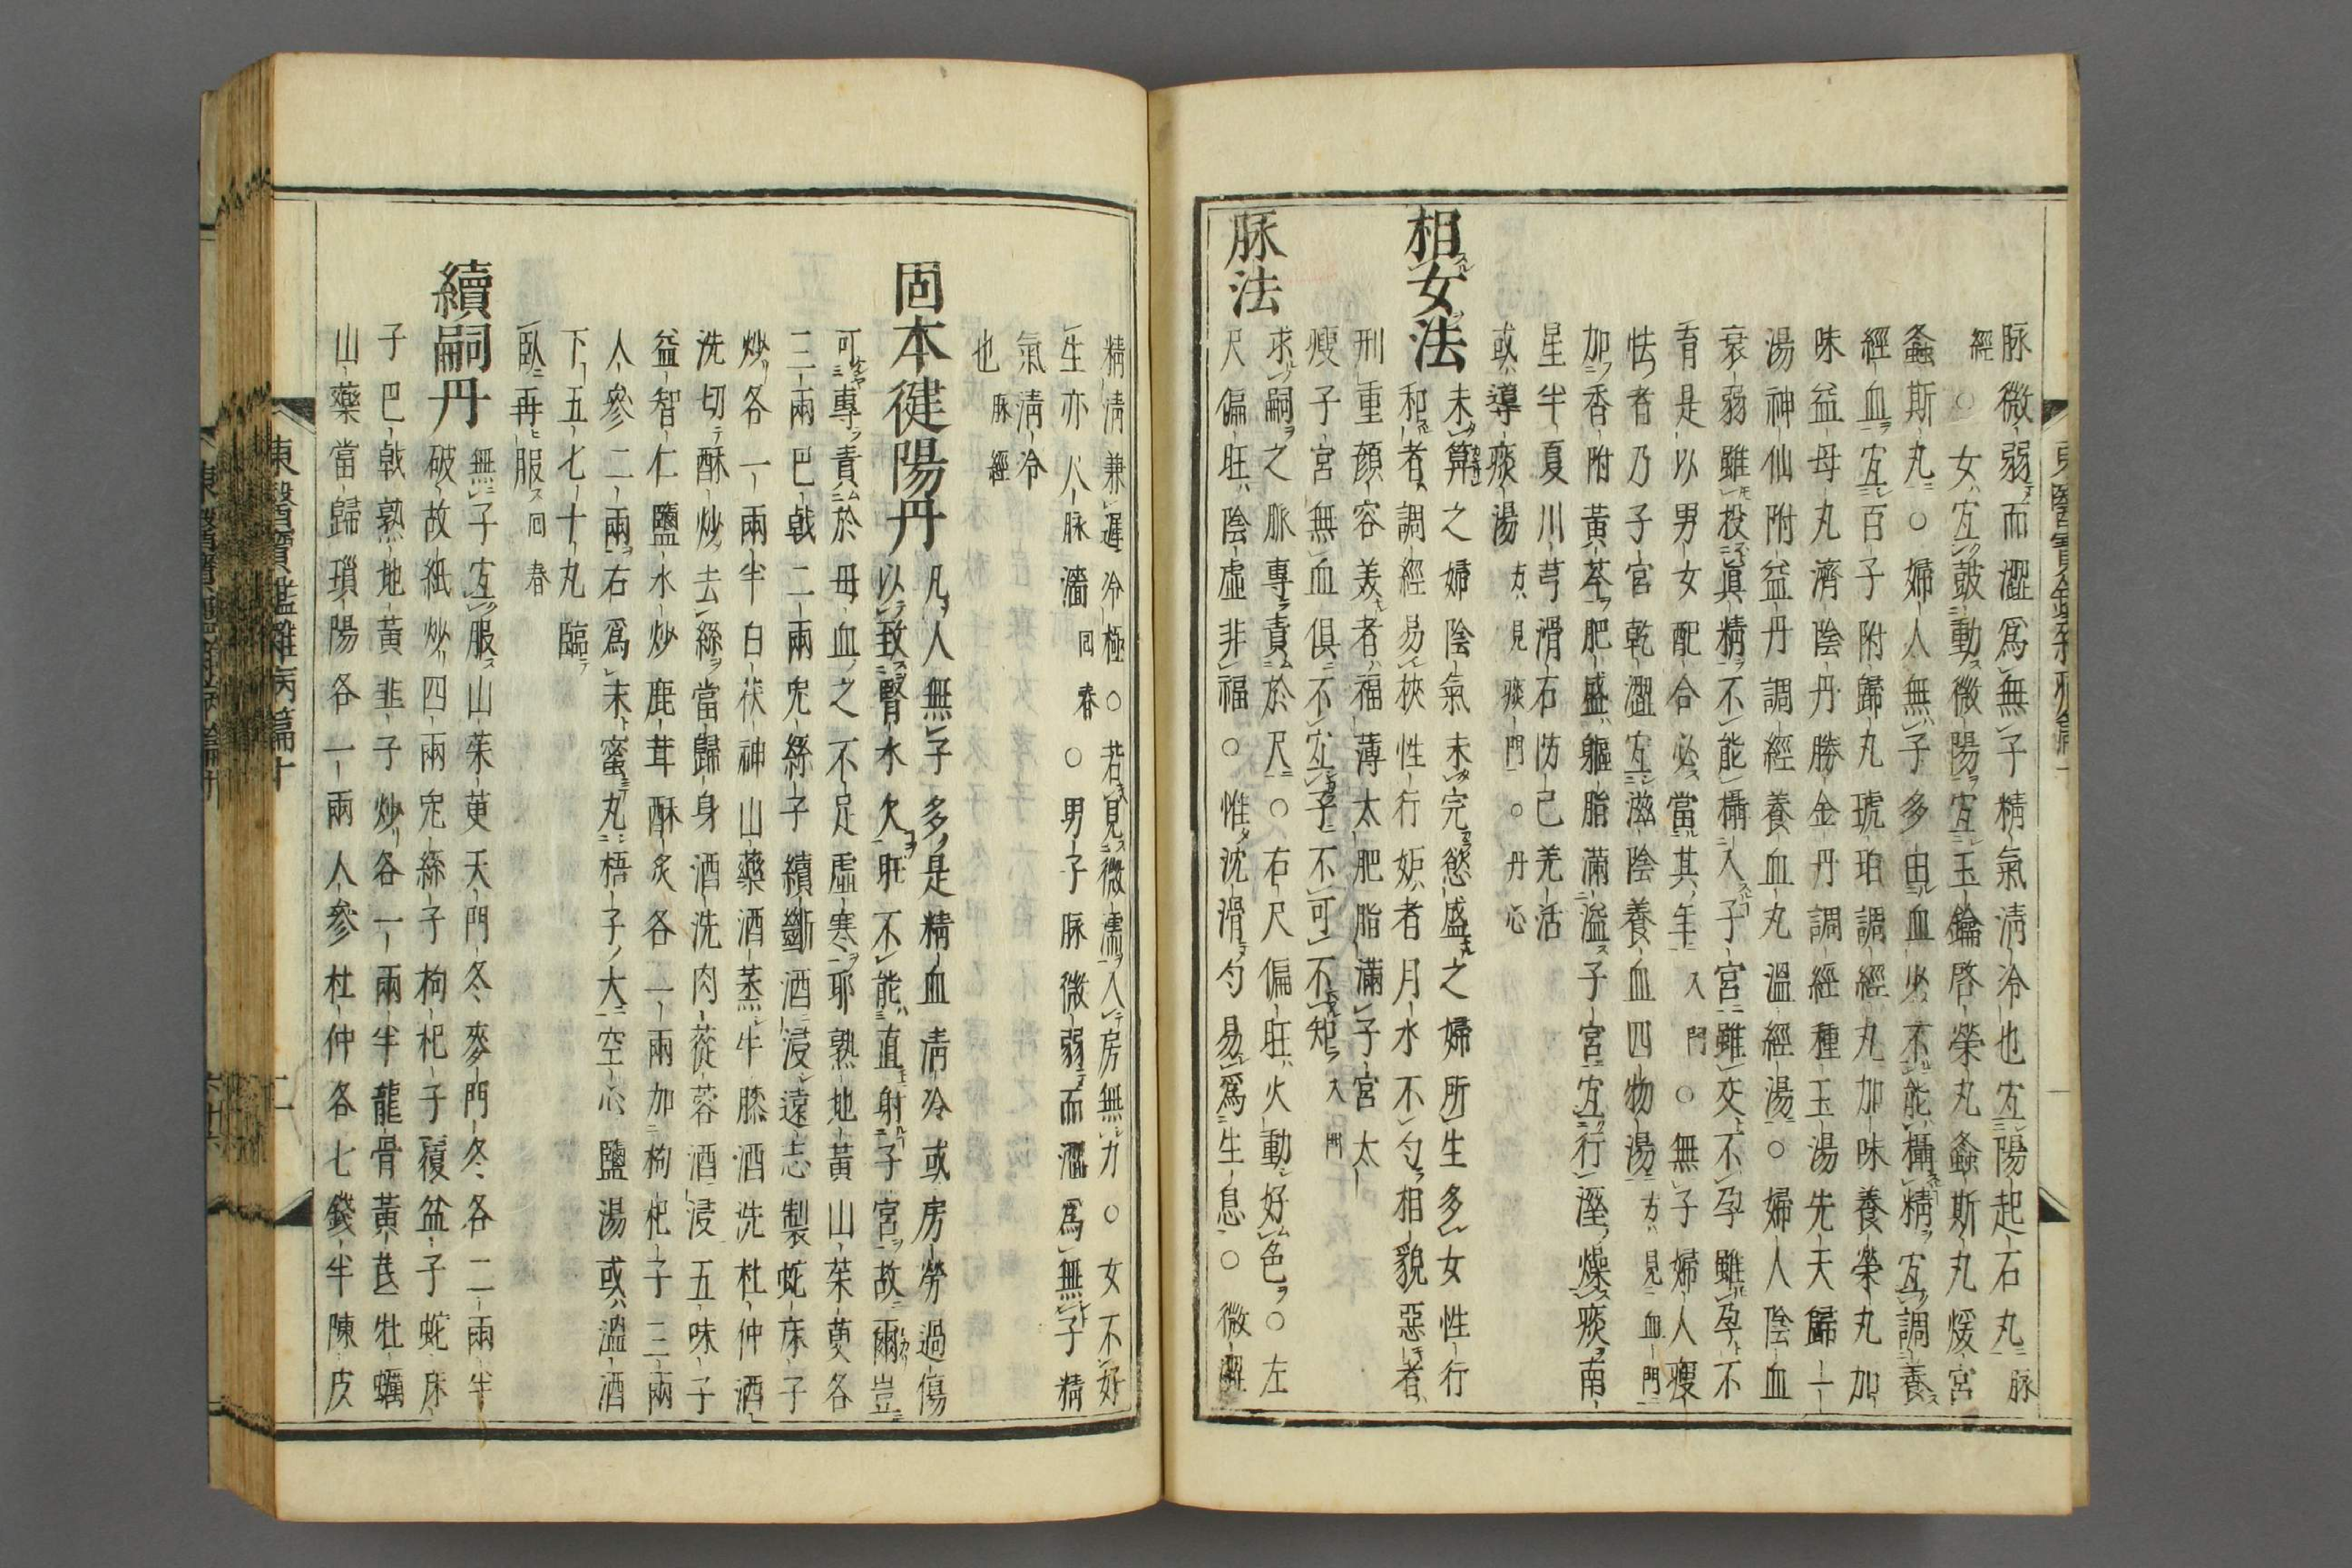 脉微弱而澀爲無子精氣清冷也宜陽起石丸脉
經○女宜皷動微陽宜玉鑰啓榮丸螽斯丸煖宮
螽斯丸○婦人無子多由血少不能攝精宜調養
經血宜百子附歸丸琥珀調經丸加味養榮丸加
味益母丸濟陰丹勝金丹調經種玉湯先天歸一
湯神仙附益丹調經養血丸溫經湯○婦人陰血
衰弱雖投眞精不能攝入子宮雖交不孕雖孕不
育是以男女配合必當其年入門○無子婦人瘦
怯者乃子宮乾澀宜滋陰養血四物湯方見血門
加香附黃芩肥盛軀脂滿溢子宮宜行溼燥痰南
星半夏川芎滑石防己羌活
或導痰湯方見痰門○丹心
相女法
未筭之婦陰氣未完慾盛之婦所生多女性行
和者調經易挾性行妬者月水不勻相貌惡者
刑重顔容美者福薄太肥脂滿子宮太
瘦子宮無血俱不宜子不可不知入門
脉法
求嗣之脈專責於尺○右尺偏旺火動好色○左
尺偏旺陰虛非福○惟沈滑勻易爲生息○微澀
精清兼遲冷極○若見微濡入房無力○女不好
生亦人脉濇同春○男子脉微弱而澀爲無子精
氣清冷
也脉經
固本健陽丹
凡人無子多是精血清冷或房勞過傷
以致腎水欠旺不能直射子宮故爾豈
可專責於母血之不足虛寒耶熟地黃山茱萸各
三兩巴戟二兩兔絲子續斷酒浸遠志製蛇床子
炒各一兩半白茯神山藥酒蒸牛膝酒洗杜仲酒
洗切酥炒去絲當歸身酒洗肉蓯蓉酒浸五味子
益智仁鹽水炒鹿茸酥炙各一兩加枸杞子三兩
人參二兩右爲末蜜丸梧子大空心鹽湯或溫酒
下五七十丸臨
臥再服同春
續嗣丹
無子宜服山茱萸天門冬麥門冬各二兩半
破故紙炒四兩兔絲子枸杞子覆盆子蛇床
子巴戟熟地黃韭子炒各一兩半龍骨黃芪牡蠣
山藥當歸瑣陽各一兩人參杜仲各七錢半陳皮
東醫寶鑑雜病篇十
二